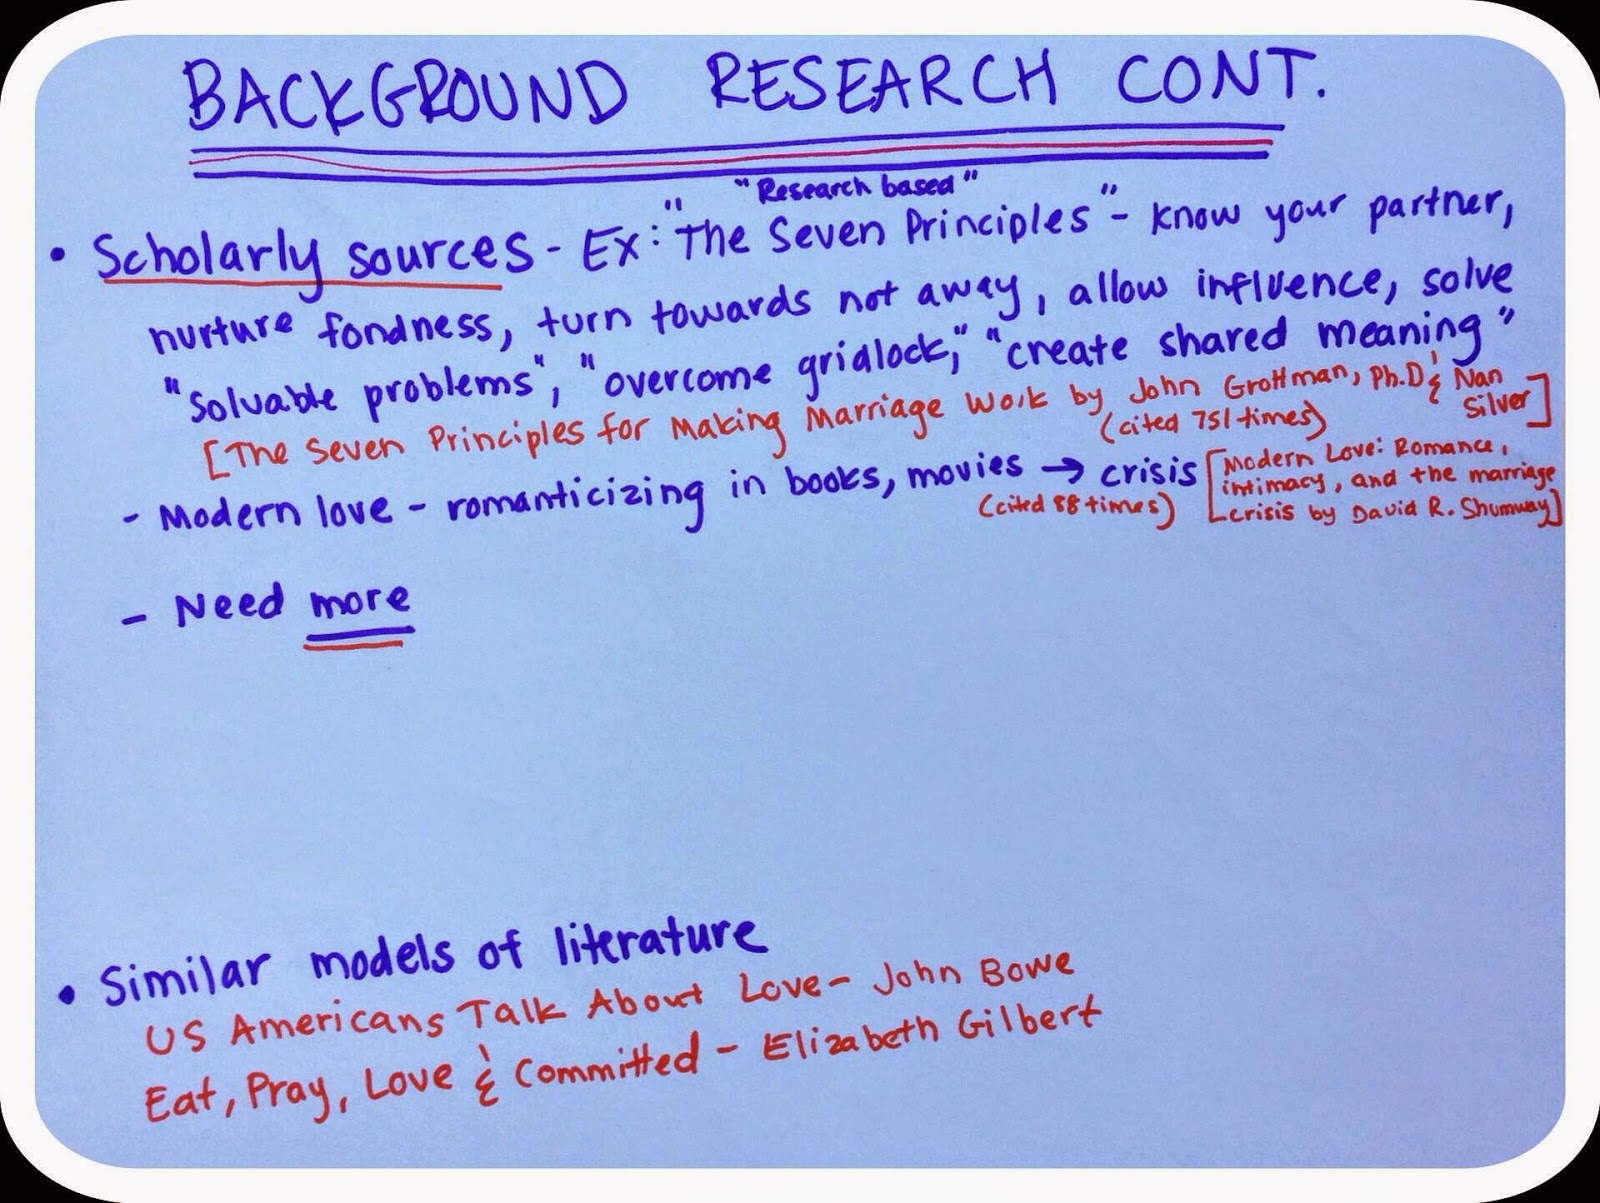 BACKGROUND RESEARCH CONT.
"Research based"
• Scholarly sources - Ex: "The Seven Principles" - know your partner,
nurture fondness, turn towards not away, allow influence, solve
"soluable problems", "overcome gridlock," "create shared meaning"
[The Seven Principles for Making Marriage Work by John Grottman, Ph.D & Nan
Silver]
(cited 751 times)
- Modern love - romanticizing in books, movies → crisis [Modern Love: Romance,
intimacy, and the marriage
crisis by David R. Shumway]
(cited 88 times)
- Need more
• Similar models of literature
US Americans Talk About Love - John Bowe
Eat, Pray, Love & Committed - Elizabeth Gilbert